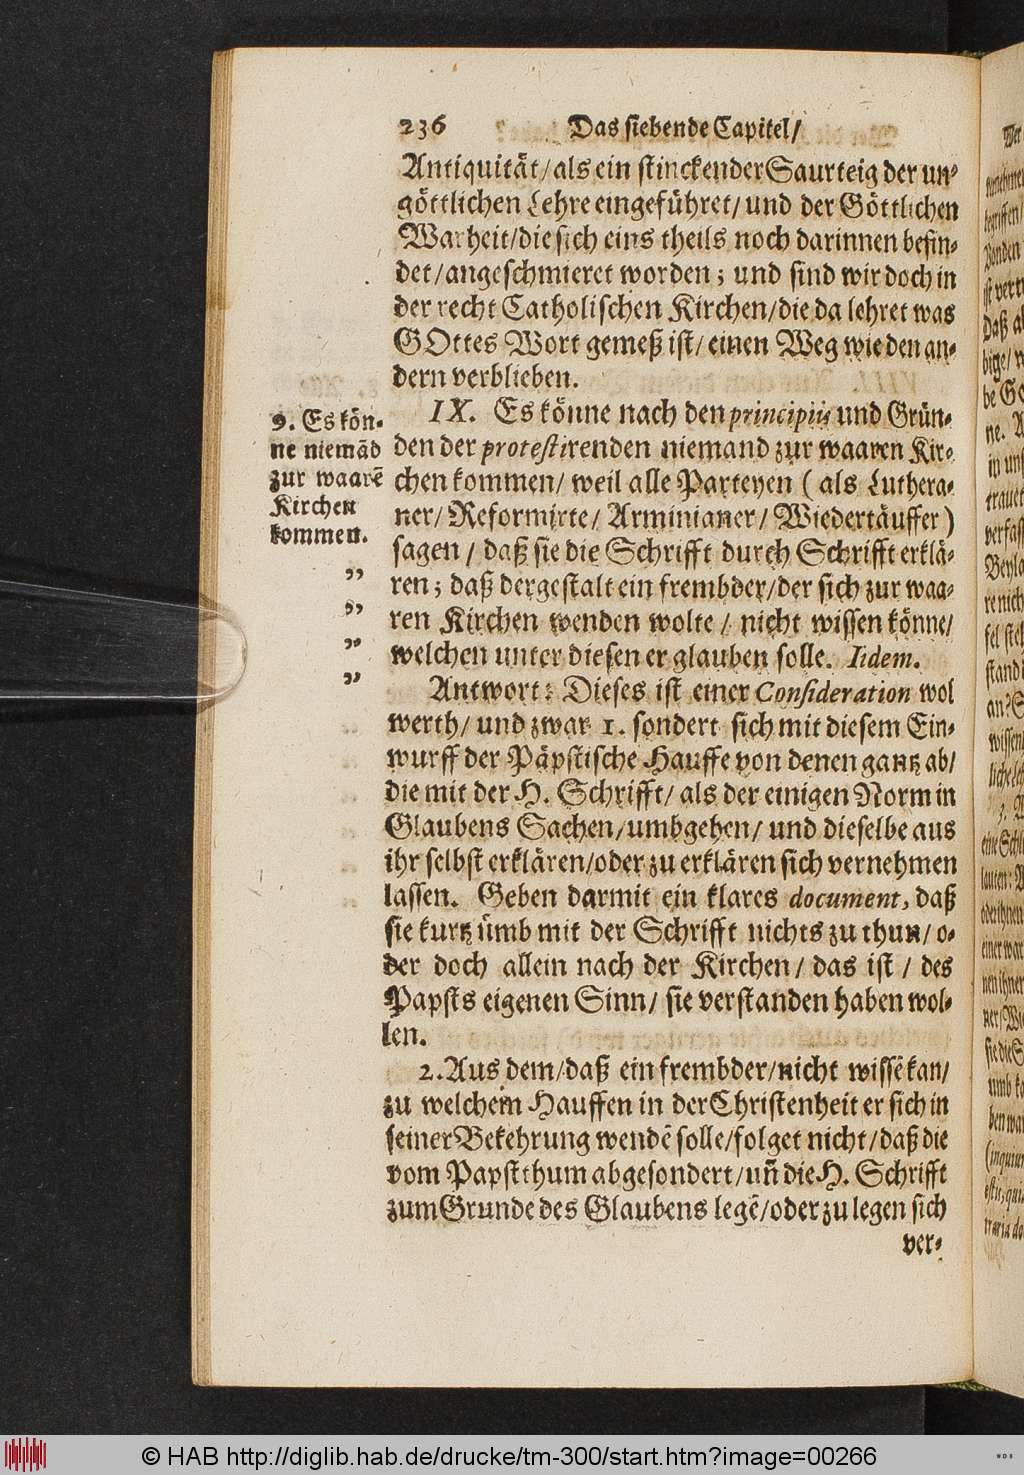 236 Das siebende Capitel/
Antiquität/als ein stinckender Saurteig der un-
göttlichen Lehre eingeführet/ und der Göttlichen
Warheit/die sich eins theils noch darinnen befin-
det/angeschmieret worden; und sind wir doch in
der recht Catholischen Kirchen/die da lehret was
GOttes Wort gemeß ist/ einen Weg wie den an-
dern verblieben.
IX. Es könne nach den principiis und Grün-
den der protestirenden niemand zur waaren Kir-
chen kommen/ weil alle Parteyen ( als Luthera-
ner/ Reformirte/ Arminianer/ Wiedertäuffer )
sagen / daß sie die Schrifft durch Schrifft erklä-
ren; daß dergestalt ein frembder/der sich zur waa-
ren Kirchen wenden wolte / nicht wissen könne/
welchen unter diesen er glauben solle. Iidem.
9. Es kön-
ne niemãd
zur waarẽ
Kirchen
kommen.
"
"
"
"
Antwort: Dieses ist einer Consideration wol
werth/ und zwar 1. sondert sich mit diesem Ein-
wurff der Päpstische Hauffe von denen gantz ab/
die mit der H. Schrifft/ als der einigen Norm in
Glaubens Sachen/umbgehen/ und dieselbe aus
ihr selbst erklären/oder zu erklären sich vernehmen
lassen. Geben darmit ein klares document, daß
sie kurtz ümb mit der Schrifft nichts zu thun/ o-
der doch allein nach der Kirchen/ das ist / des
Papsts eigenen Sinn/ sie verstanden haben wol-
len.
2. Aus dem/daß ein frembder/nicht wissẽ kan/
zu welchem Hauffen in der Christenheit er sich in
seiner Bekehrung wendẽ solle/folget nicht/daß die
vom Papstthum abgesondert/uñ die H. Schrifft
zum Grunde des Glaubens legẽ/oder zu legen sich
ver-
© HAB http://diglib.hab.de/drucke/tm-300/start.htm?image=00266